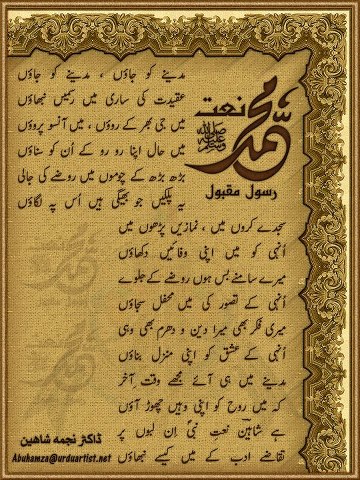 مدینے کو جاؤں ، مدینے کو جاؤں
عقیدت کی ساری میں رسمیں نبھاؤں
میں جی بھر کے روؤں ، میں آنسو پروؤں
میں حال اپنا رو رو کے اُن کو سناؤں
بڑھ بڑھ کے چوموں میں روضے کی جالی
یہ پلکیں جو بھیگی ہیں اُس پہ لگاؤں
نعت
محمد
صلی اللہ علیہ وسلم
رسول مقبول
سجدے کروں میں ، نمازیں پڑھوں میں
اُنہی کو میں اپنی وفائیں دکھاؤں
میرے سامنے بس ہوں روضے کے جلوے
اُنہی کے تصور کی میں محفل سجاؤں
میری فکر بھی میرا دین و دھرم بھی وہی
اُنہی کے عشق کو اپنی منزل بناؤں
مدینے میں ہی آئے مجھے وقتِ آخر
کہ میں روح کو اپنی وہیں چھوڑ آؤں
ہے شاہین نعتِ نبیؐ اِن لبوں پر
تقاضے ادب کے میں کیسے نبھاؤں
ڈاکٹر نجمہ شاہین
Abuhamza@urduartist.net